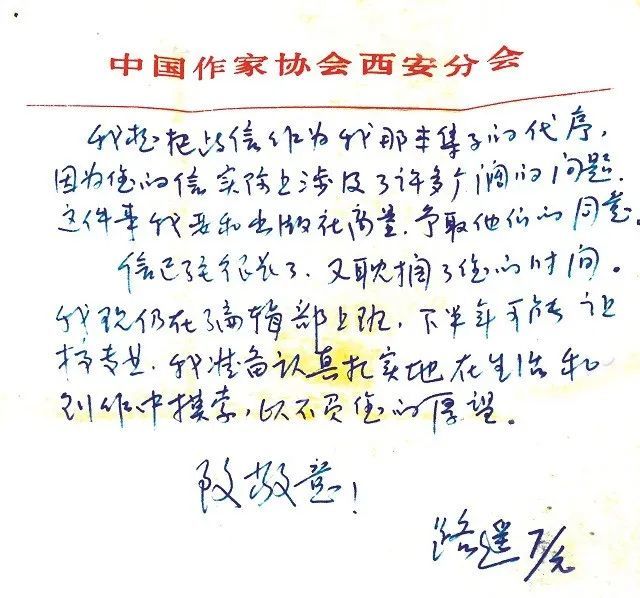 中国作家协会西安分会
我想把此信作为我那本集子的代序，
因为您的信实际上涉及了许多个阔的问题.
这件事我要和出版社商量,争取他们的同意。
信已经很长了、又耽搁了您的时间。
我现仍在编辑部上班，下半年可能让
搞专业.我准备认真扎实地在生活和
创作中摸索，以不负您的厚望。
致敬意！
路遥